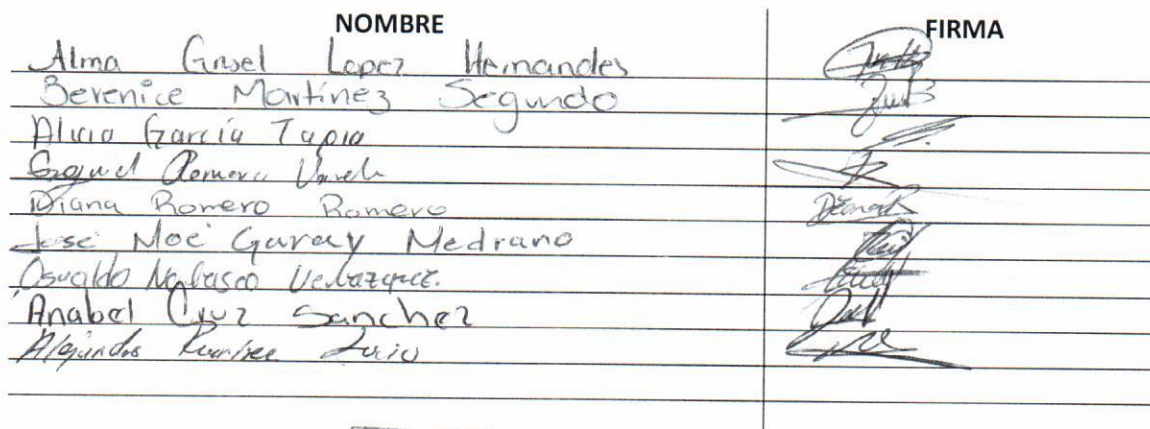 NOMBRE FIRMA
Alma Grisel Lopez Hernandes
Berenice Martínez Segundo
Alicia García Tapia
Romero
Diana Romero Romero
José Noé Garay Medrano
Osvaldo Velazquez.
Anabel Cruz Sanchez
Alejandro Ramirez Lucio